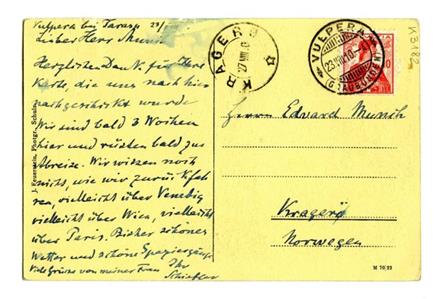 Vulpera bei Tarasp 23/
Lieber Herr Munch
Herzlichen Dank für Ihre
Karte, die uns nach hier
nachgeschickt wurde
Wir sind bald 3 Wochen
hier und rüsten bald zur
Abreise. Wir wissen noch
nicht, wie wir zurück
fahren, vielleicht über Venedig
vielleicht über Wien, vielleicht
über Paris. Bisher schönes
Wetter und schöne Spaziergänge
Viele Grüsse von meiner Frau Ihr
Schiefler
J. Feuerstein, Photogr., Schuls
KRAGERØ
27 VIII 10
VULPERA
(GRAUBÜNDEN)
23.VIII.10.
K 3182
Herrn Edvard Munch
Kragerø
Norwegen